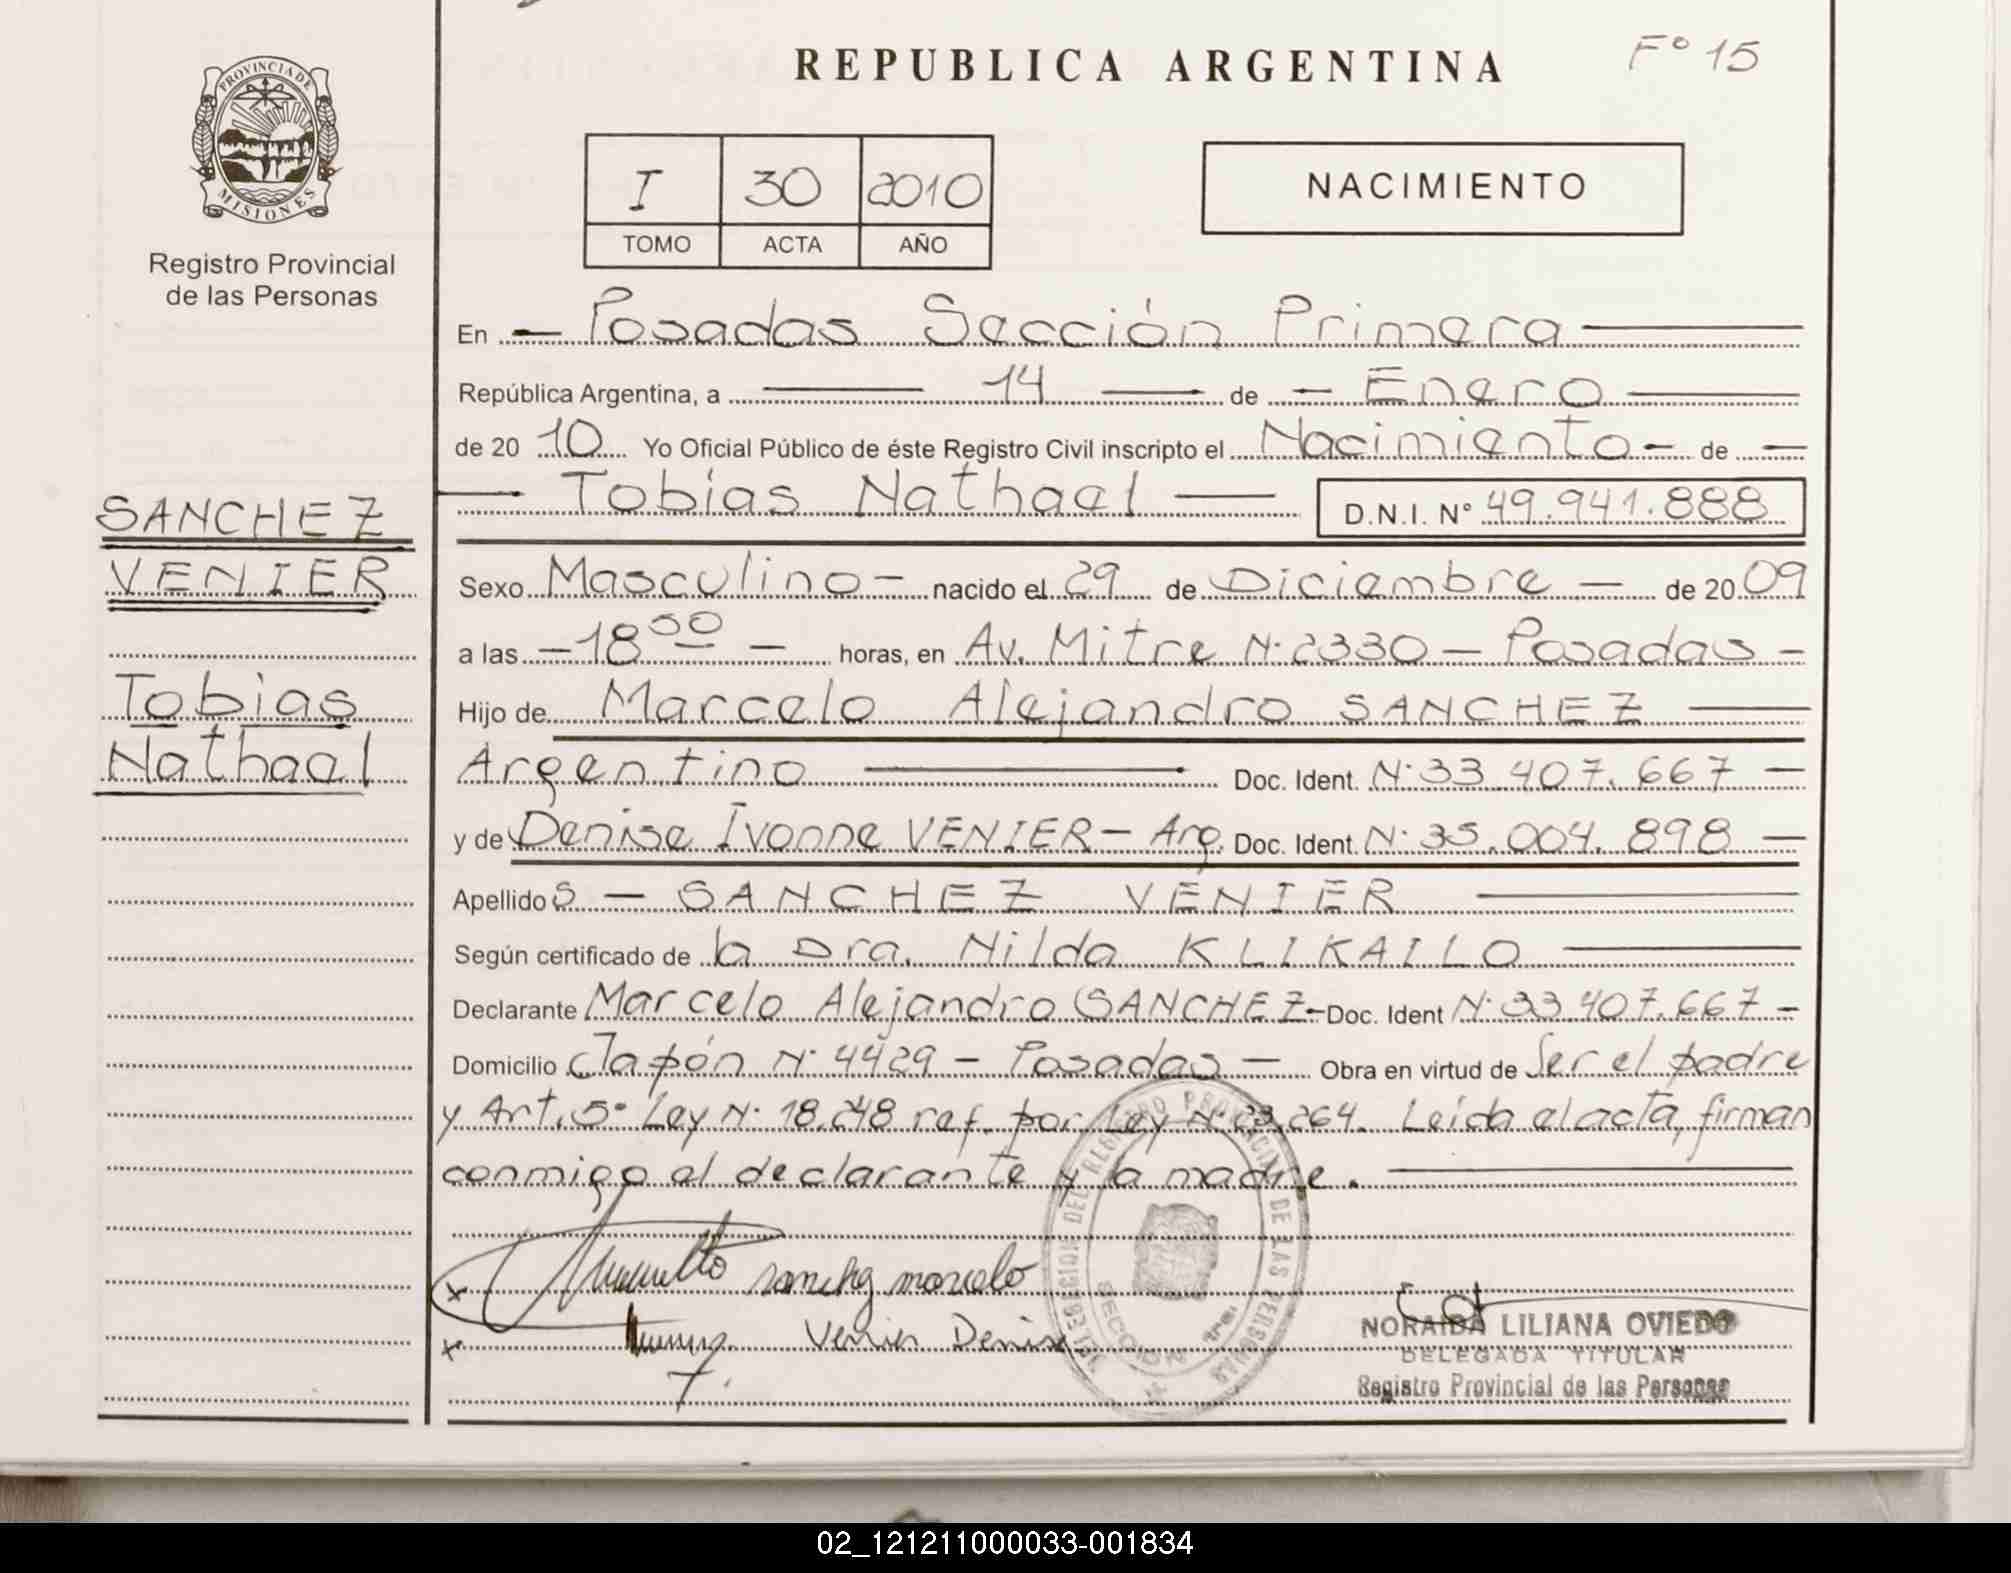 Fº 15
REPUBLICA ARGENTINA
PROVINCIA DE MISIONES
Registro Provincial
de las Personas
I 30 2010
TOMO ACTA AÑO
NACIMIENTO
En Posadas Sección Primera
República Argentina, a 14 de Enero
de 20 10 Yo Oficial Público de éste Registro Civil inscripto el Nacimiento - de -
Tobías Nathael D.N.I. N° 49.941.888
SANCHEZ
VENIER
Tobías
Nathael
Sexo Masculino - nacido el 29 de Diciembre - de 20 09
a las - 18 50 - horas, en Av. Mitre N° 2330 - Posadas -
Hijo de Marcelo Alejandro SANCHEZ
Argentino Doc. Ident. N° 33.407.667 -
y de Denise Ivonne VENIER - Arg. Doc. Ident. N° 35.004.898 -
Apellido S - SANCHEZ VENIER
Según certificado de la Dra. Nilda KLIKAILO
Declarante Marcelo Alejandro SANCHEZ - Doc. Ident N° 33.407.667 -
Domicilio Japón N° 4429 - Posadas - Obra en virtud de Ser el padre
y Art. 5° Ley N° 18.248 ref. por Ley N° 23.264. Leída el acta, firman
conmigo el declarante y la madre.
x sanchez marcelo
x Venier Denise
DEL REGISTRO PROVINCIAL DE LAS PERSONAS
SECCION 1ra.
NORAIDA LILIANA OVIEDO
DELEGADA TITULAR
Registro Provincial de las Personas
02_121211000033-001834